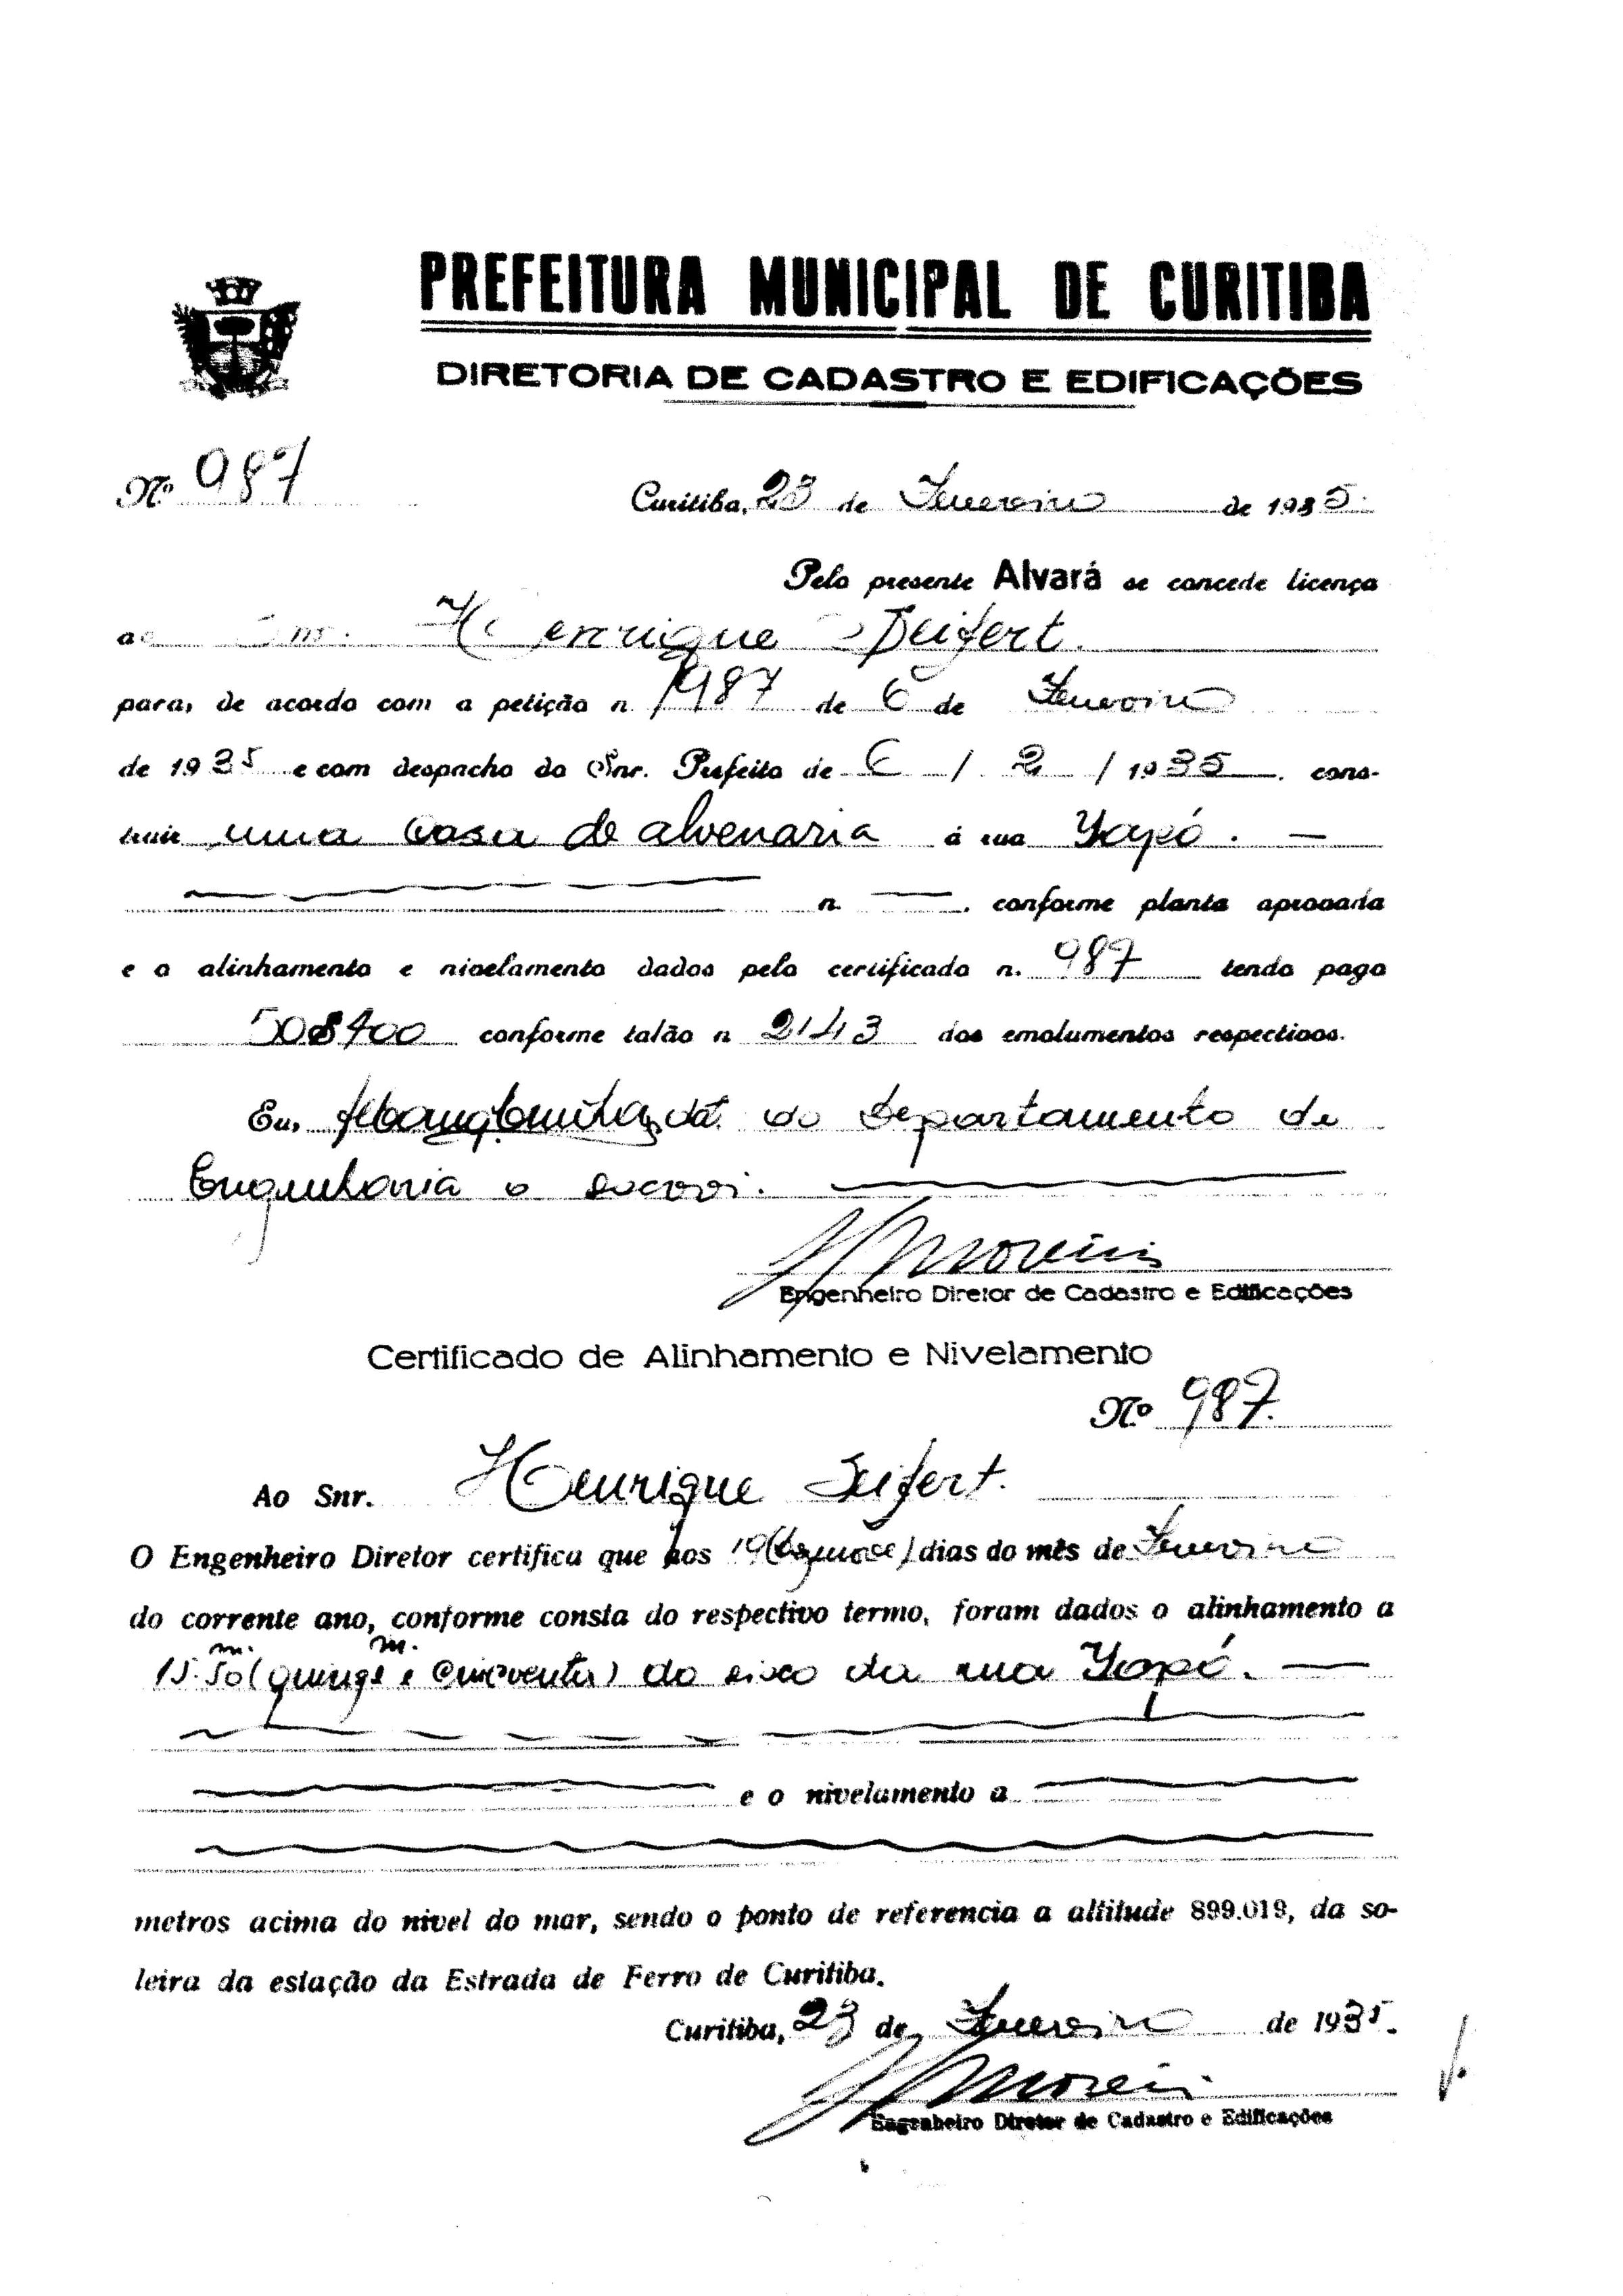 PREFEITURA MUNICIPAL DE CURITIBA
DIRETORIA DE CADASTRO E EDIFICAÇÕES
Nº 987
Curitiba, 23 de Fevereiro de 1935.
Pelo presente Alvará se concede licença
ao Snr. Henrique Seifert.
para, de acordo com a petição n. 987 de 6 de Fevereiro
de 1935 e com despacho do Snr. Prefeito de 6 / 2 / 1935. cons-
truir uma casa de alvenaria á rua Yapó. —
n. — conforme planta aprovada
e o alinhamento e nivelamento dados pelo certificado n. 987 tendo pago
50$400 conforme talão n 2143 dos emolumentos respectivos.
Eu, dat. do Departamento de
Engenharia o escrevi.
Moreira
Engenheiro Diretor de Cadastro e Edificações
Certificado de Alinhamento e Nivelamento
Nº 987.
Ao Snr. Henrique Seifert.
O Engenheiro Diretor certifica que aos 19 dias do mês de Fevereiro
do corrente ano, conforme consta do respectivo termo, foram dados o alinhamento a
15.m50 (quinze m. e cincoenta) do eixo da rua Yapó. —
e o nivelamento a
metros acima do nivel do mar, sendo o ponto de referencia a altitude 899.019, da so-
leira da estação da Estrada de Ferro de Curitiba.
Curitiba, 23 de Fevereiro de 1935.
Moreira
Engenheiro Diretor de Cadastro e Edificações